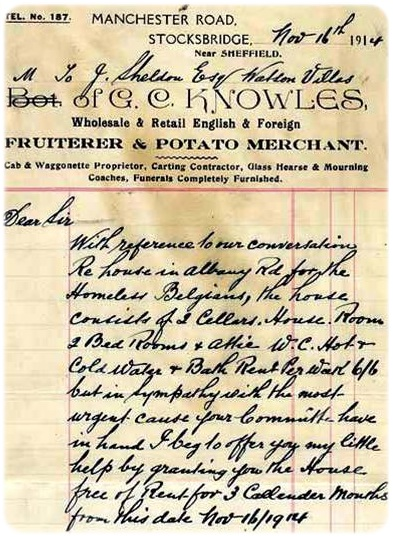 TEL. No. 187.
MANCHESTER ROAD,
STOCKSBRIDGE, Nov 16th 1914
Near SHEFFIELD.
M To J. Sheldon Esq Watson Villas
Bot. of G. C. KNOWLES,
Wholesale & Retail English & Foreign
FRUITERER & POTATO MERCHANT.
Cab & Waggonette Proprietor, Carting Contractor, Glass Hearse & Mourning
Coaches, Funerals Completely Furnished.
Dear Sir
With reference to our conversation
Re house in Albany Rd for the
Homeless Belgians, the house
consists of 2 Cellars. House. Room
2 Bed Rooms & Attic W.C. Hot &
Cold Water & Bath Rent Per Week 6/6
but in Sympathy with the most
urgent cause your Committe have
in hand I beg to offer you my little
help by granting you the House
free of Rent for 3 Callender Months
from this date Nov 16/1914